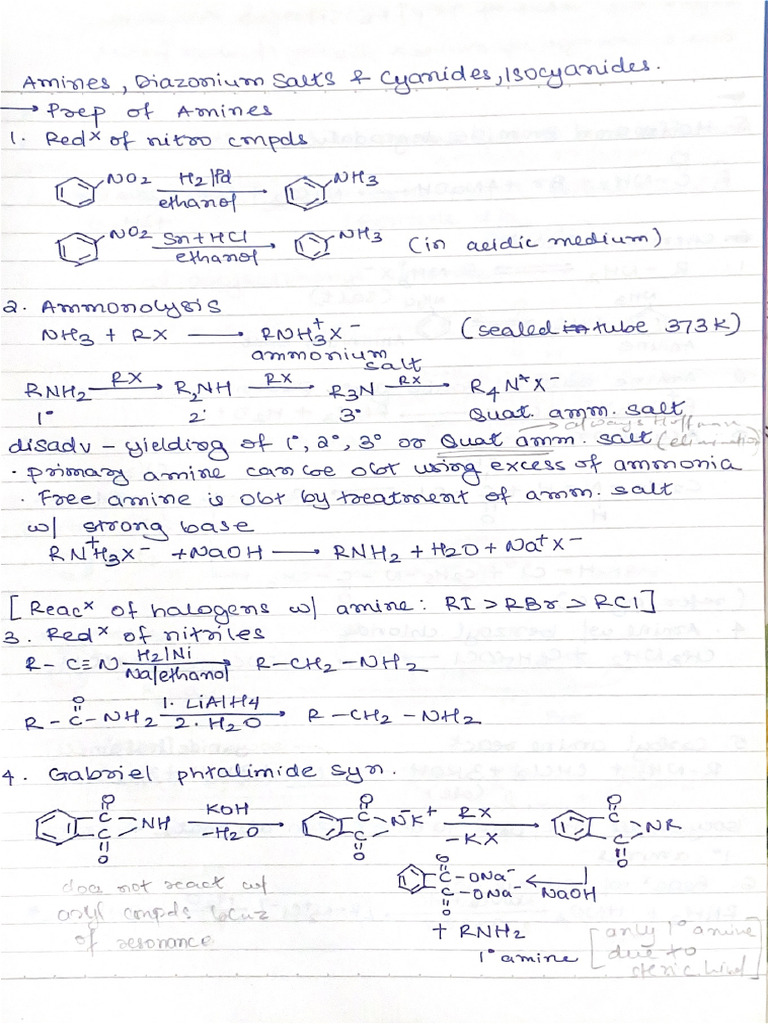 Amines, Diazonium Salts & Cyanides, Isocyanides.
→ Prep of Amines
1. Redˣ of nitro cmpds
NO2 H2/Pd ethanol → NH3
NO2 Sn+HCl ethanol → NH3 (in acidic medium)
2. Ammonolysis
NH3 + RX → RNH3⁺X⁻ (sealed tube 373K)
ammonium salt
RNH2 RX → R2NH RX → R3N RX → R4N⁺X⁻
1° 2° 3° Quat. amm. salt
→ always Hoffmann
disadv – yielding of 1°, 2°, 3° or Quat amm. salt (elimination)
· primary amine can be obt using excess of ammonia
· Free amine is obt by treatment of amm. salt
w/ strong base
RN⁺H3X⁻ + NaOH → RNH2 + H2O + Na⁺X⁻
[Reacˣ of halogens w/ amine: RI > RBr > RCl]
3. Redˣ of nitriles
R – C≡N H2/Ni Na/ethanol → R–CH2–NH2
R – C – NH2 1. LiAlH4 2. H2O → R – CH2 – NH2
O
4. Gabriel phtalimide syn.
O O O
C C NH KOH –H2O → C C N⁻K⁺ RX –KX → C C NR
O O O
O
C – ONa⁻ ← NaOH
C – ONa⁻
O
does not react w/
aryl cmpds bcuz
of resonance
+ RNH2
1° amine
[only 1° amine
due to
steric hind]